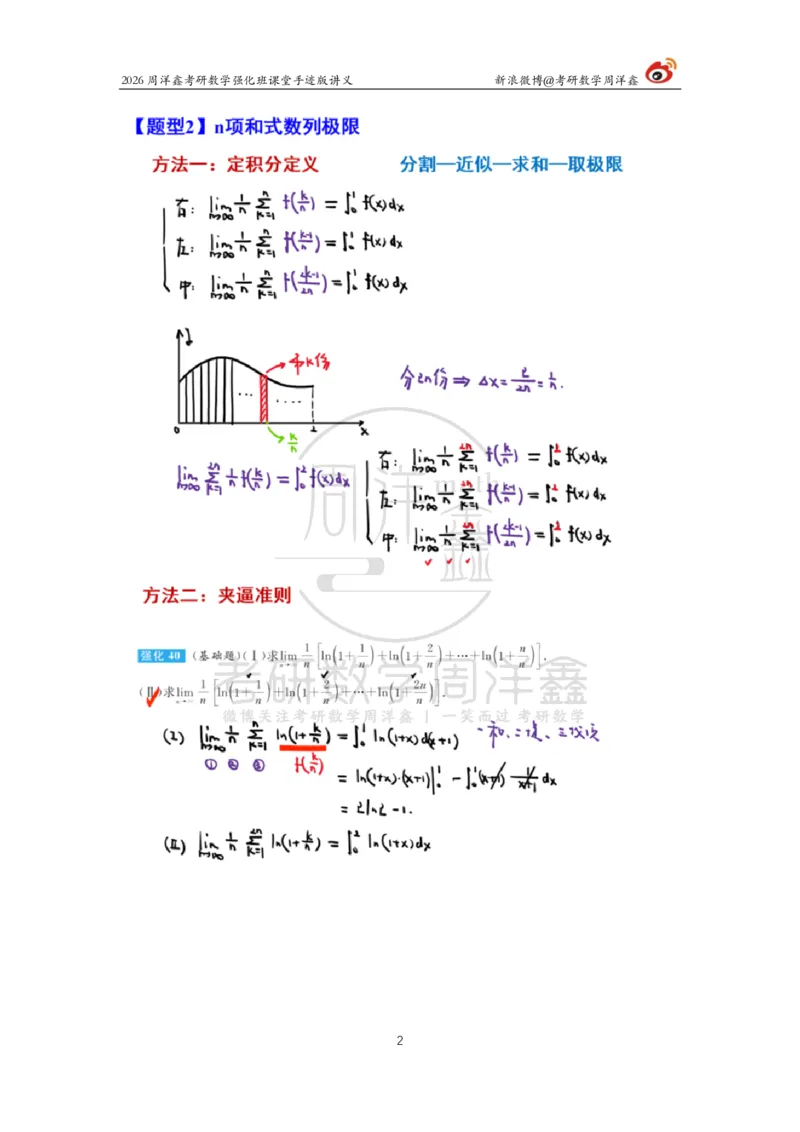 2026周洋鑫考研数学强化班课堂手迹版讲义 新浪微博@考研数学周洋鑫
【题型2】n项和式数列极限
方法一：定积分定义 分割—近似—求和—取极限
右: lim_{n→∞} 1/n ∑_{k=1}^{n} f(k/n) = ∫_0^1 f(x)dx
左: lim_{n→∞} 1/n ∑_{k=1}^{n} f((k-1)/n) = ∫_0^1 f(x)dx
中: lim_{n→∞} 1/n ∑_{k=1}^{n} f((2k-1)/2n) = ∫_0^1 f(x)dx
y
第k份
... .....
0 2 x
k/n
分2n份 ⇒ Δx = 2/2n = 1/n.
lim_{n→∞} ∑_{k=1}^{2n} 1/n f(k/n) = ∫_0^2 f(x)dx
右: lim_{n→∞} 1/n ∑_{k=1}^{2n} f(k/n) = ∫_0^2 f(x)dx
左: lim_{n→∞} 1/n ∑_{k=1}^{2n} f((k-1)/n) = ∫_0^2 f(x)dx
中: lim_{n→∞} 1/n ∑_{k=1}^{2n} f((2k-1)/2n) = ∫_0^2 f(x)dx
方法二：夹逼准则
强化 40 (基础题)(Ⅰ)求lim_{n→∞} 1/n [ln(1+1/n)+ln(1+2/n)+…+ln(1+n/n)].
(Ⅱ)求lim_{n→∞} 1/n [ln(1+1/n)+ln(1+2/n)+…+ln(1+2n/n)].
(I) lim_{n→∞} 1/n ∑_{k=1}^{n} ln(1+k/n) = ∫_0^1 ln(1+x)d(x+1) 一和、二提、三找项
① ② ③ f(k/n)
= ln(1+x)·(x+1)|_0^1 - ∫_0^1 (x+1) 1/(x+1) dx
= 2ln2-1.
(II) lim_{n→∞} 1/n ∑_{k=1}^{2n} ln(1+k/n) = ∫_0^2 ln(1+x)dx
周洋鑫
考研数学周洋鑫
微博关注考研数学周洋鑫 | 一笑而过 考研数学
2